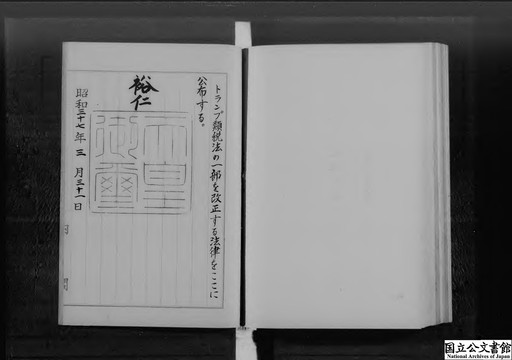 トランプ類税法の一部を改正する法律をここに
公布する。
裕仁
天皇
御璽
昭和三十七年三月三十一日
国立公文書館
National Archives of Japan